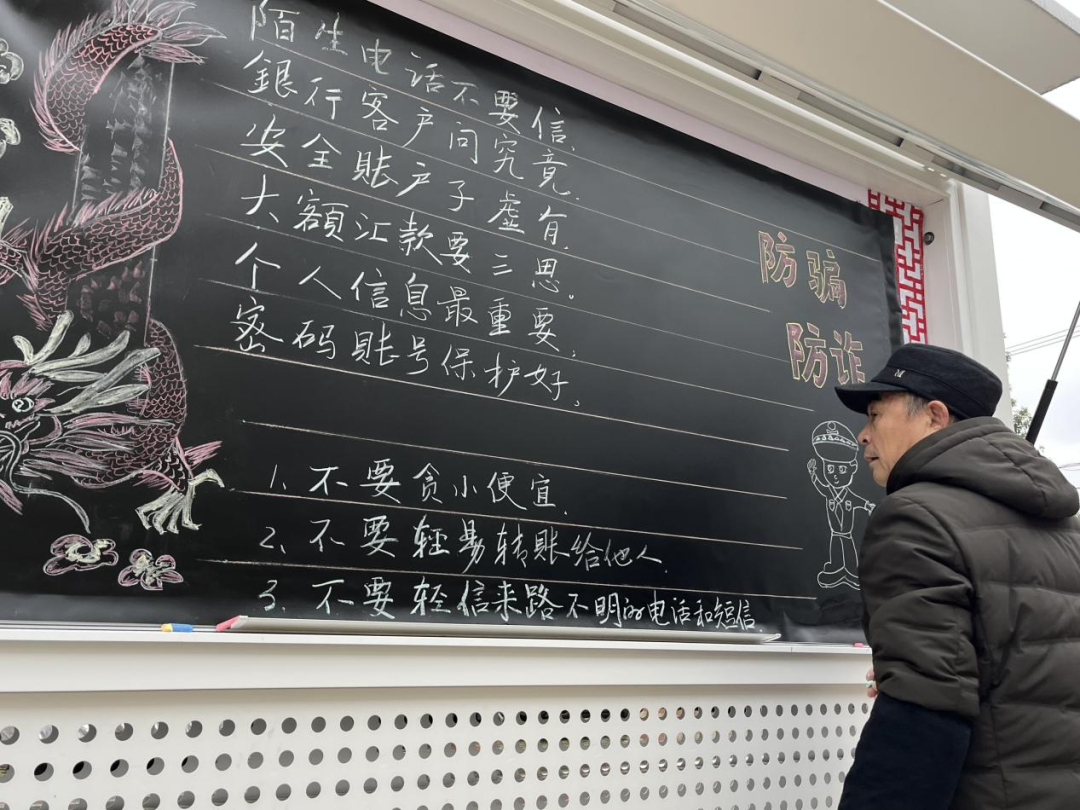 陌生电话不要信,
銀行客户问究竟.
安全賬户子虚有,
大額汇款要三思。
个人信息最重要,
密码賬号保护好,
1、不要贪小便宜.
2、不要轻易转賬给他人.
3、不要轻信来路不明的电话和短信.
防骗
防诈